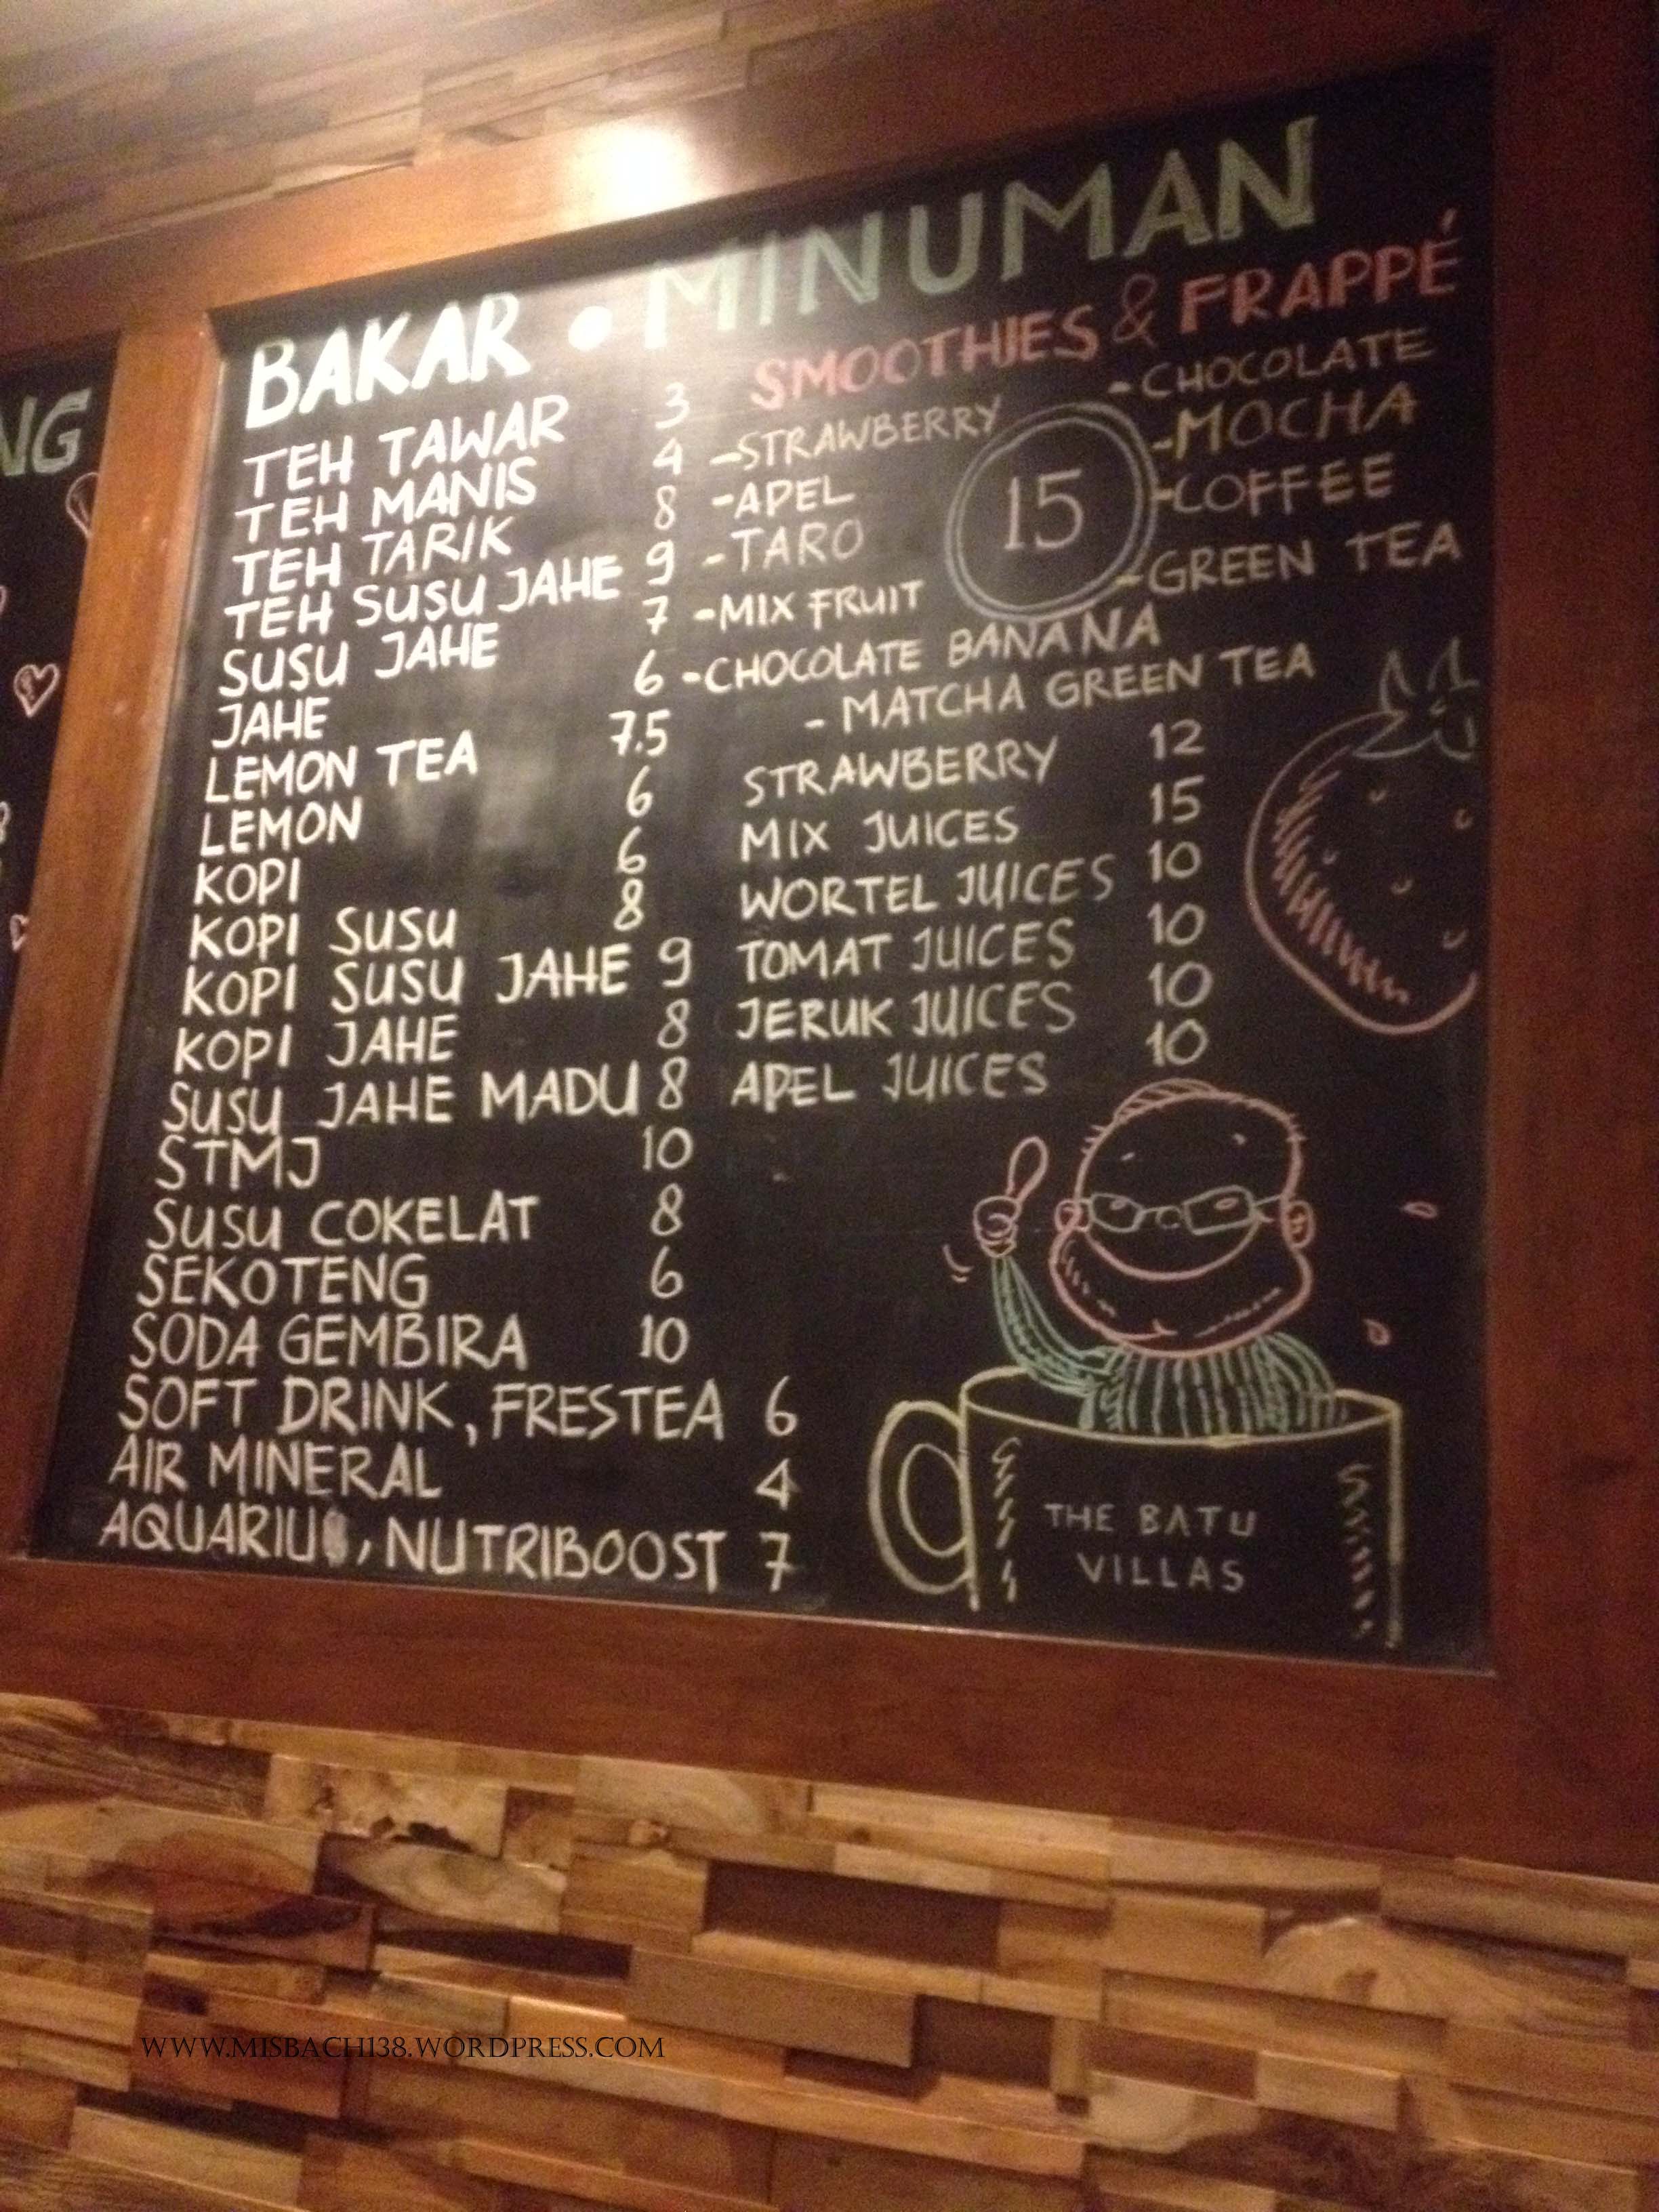 NG
BAKAR • MINUMAN
TEH TAWAR 3
TEH MANIS 4
TEH TARIK 8
TEH SUSU JAHE 9
SUSU JAHE 7
JAHE 6
LEMON TEA 7.5
LEMON 6
KOPI 6
KOPI SUSU 8
KOPI SUSU JAHE 9
KOPI JAHE 8
SUSU JAHE MADU 8
STMJ 10
SUSU COKELAT 8
SEKOTENG 6
SODA GEMBIRA 10
SOFT DRINK, FRESTEA 6
AIR MINERAL 4
AQUARIUS, NUTRIBOOST 7
SMOOTHIES & FRAPPÉ
-STRAWBERRY
-APEL
-TARO
-MIX FRUIT
-CHOCOLATE BANANA
- MATCHA GREEN TEA
15
-CHOCOLATE
-MOCHA
-COFFEE
-GREEN TEA
STRAWBERRY 12
MIX JUICES 15
WORTEL JUICES 10
TOMAT JUICES 10
JERUK JUICES 10
APEL JUICES 10
THE BATU
VILLAS
WWW.MISBACH138.WORDPRESS.COM